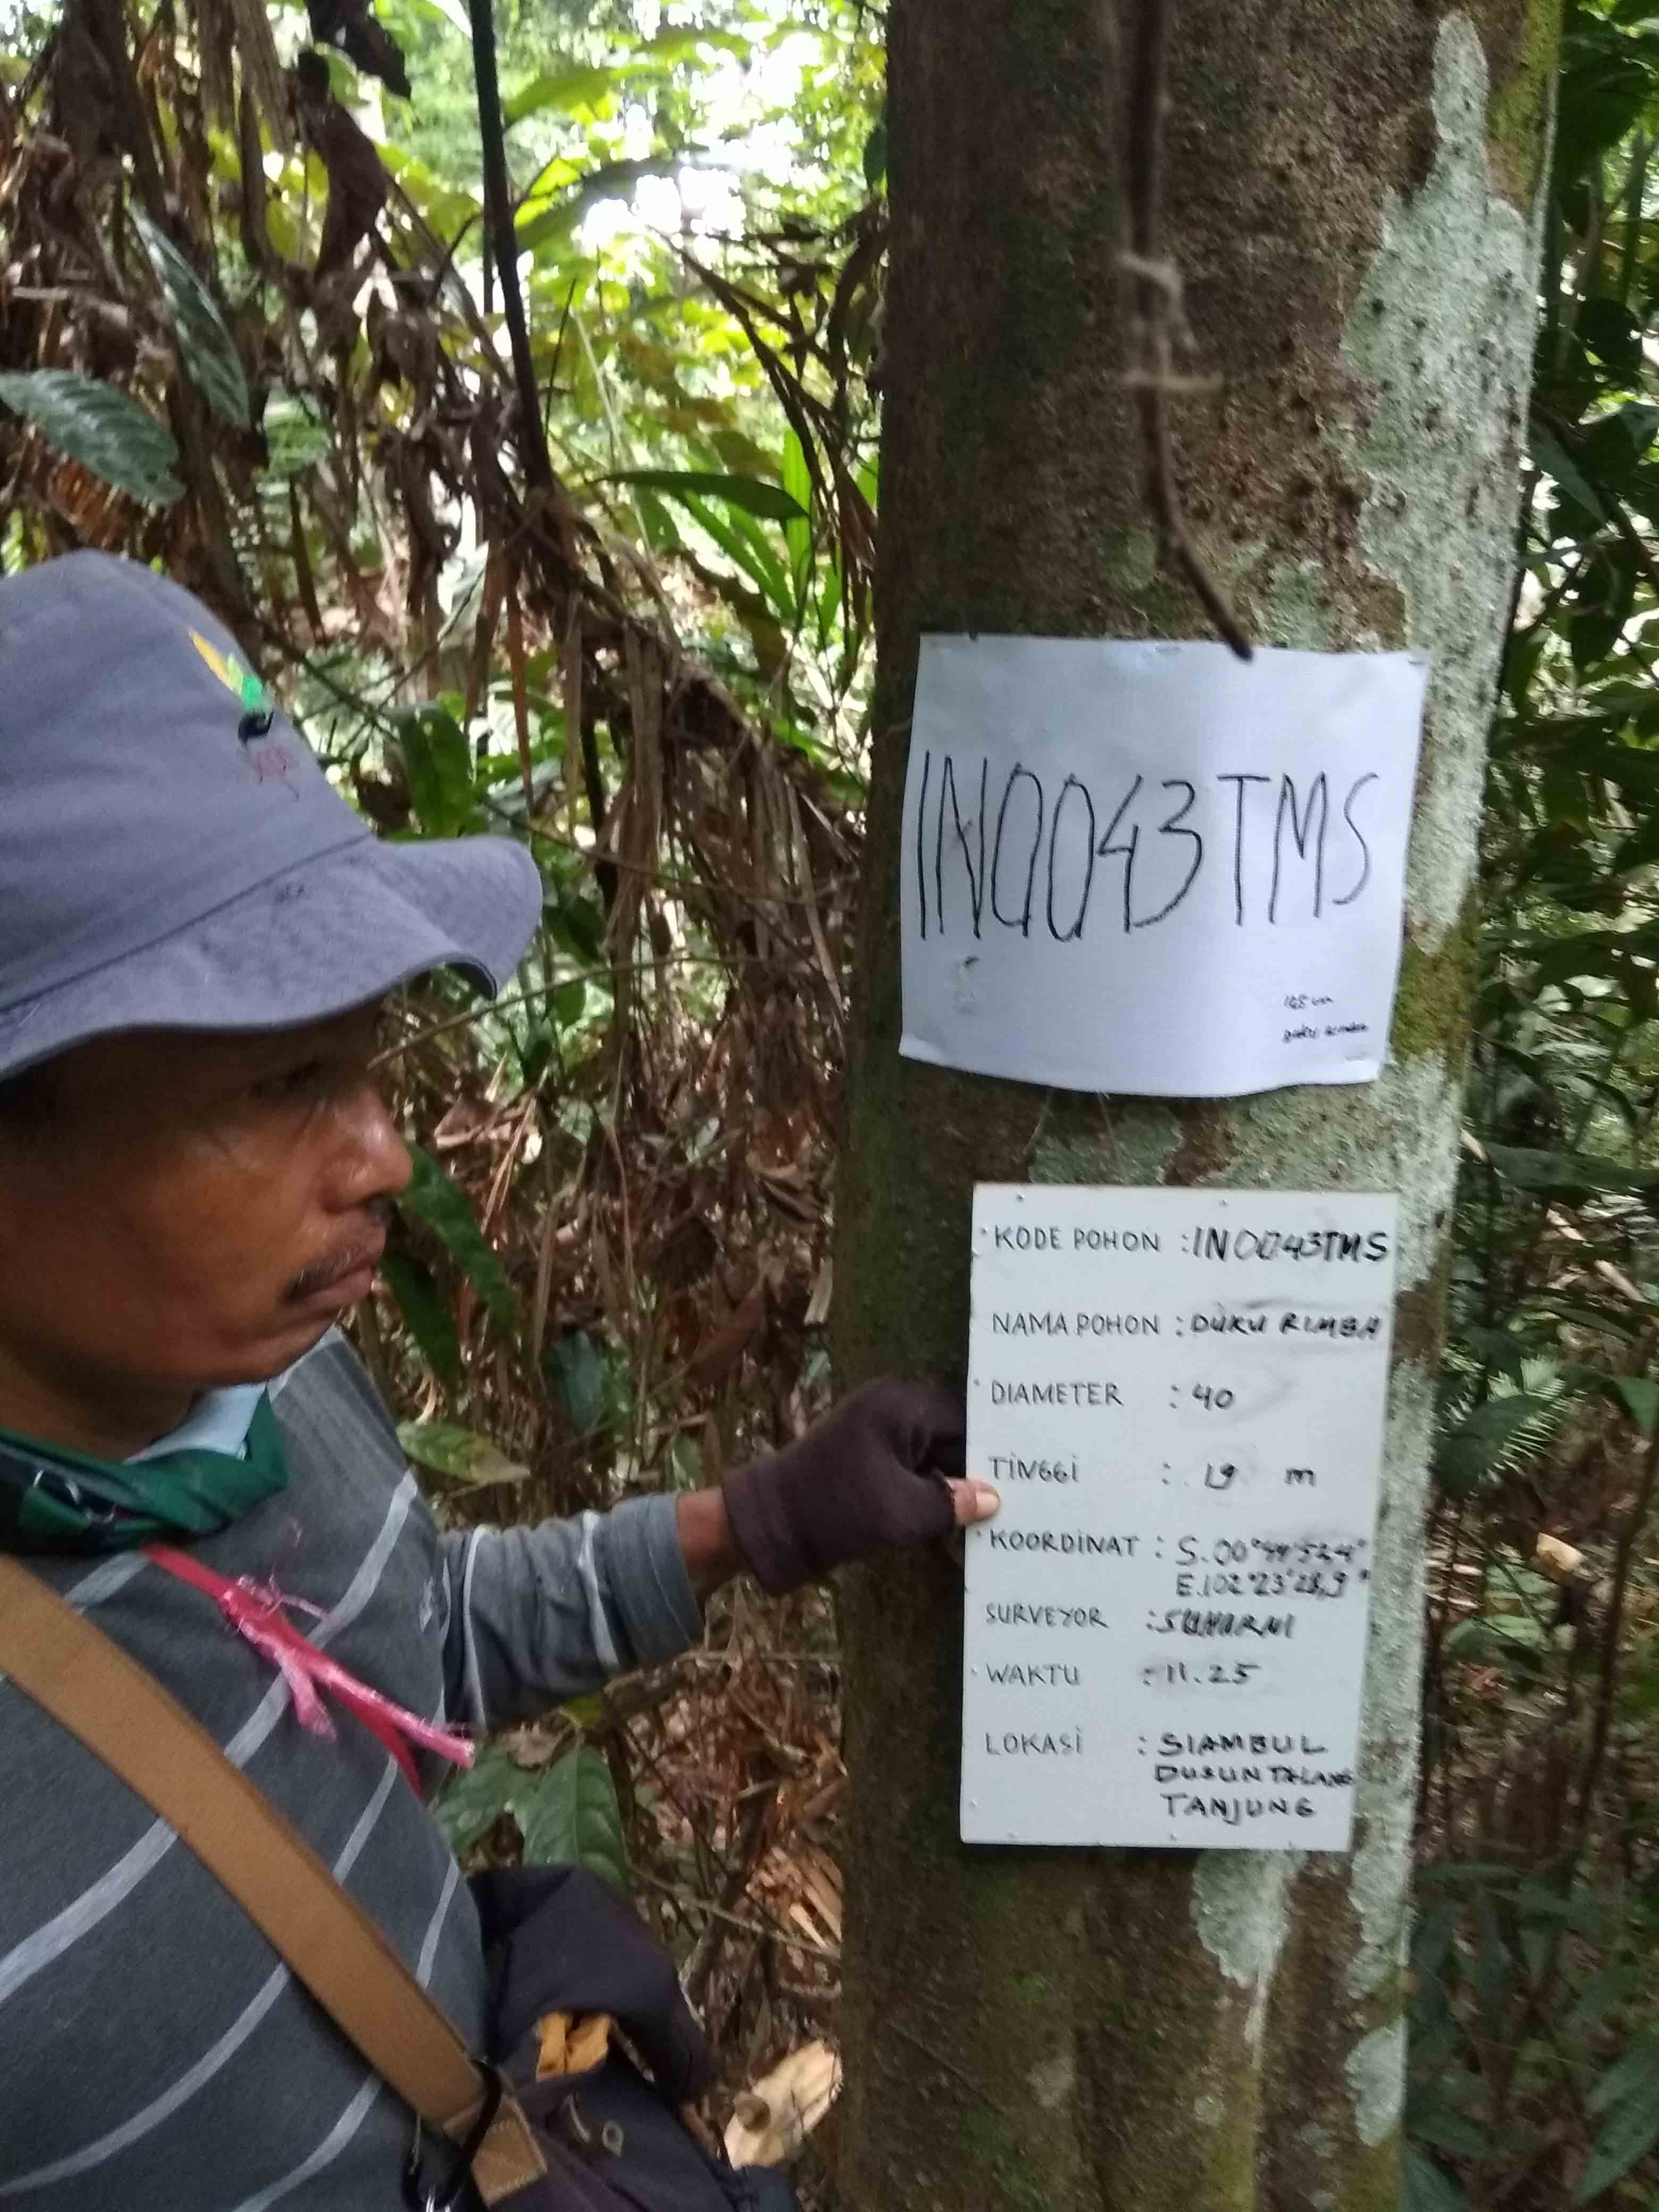 INO043TMS
KODE POHON : INO043TMS
NAMA POHON : DUKU RIMBA
DIAMETER : 40
TINGGI : 19 m
KOORDINAT : S.00°
E.102°23'28,9"
SURVEYOR :
WAKTU : 11.25
LOKASI : SIAMBUL
DUSUN TALANG
TANJUNG